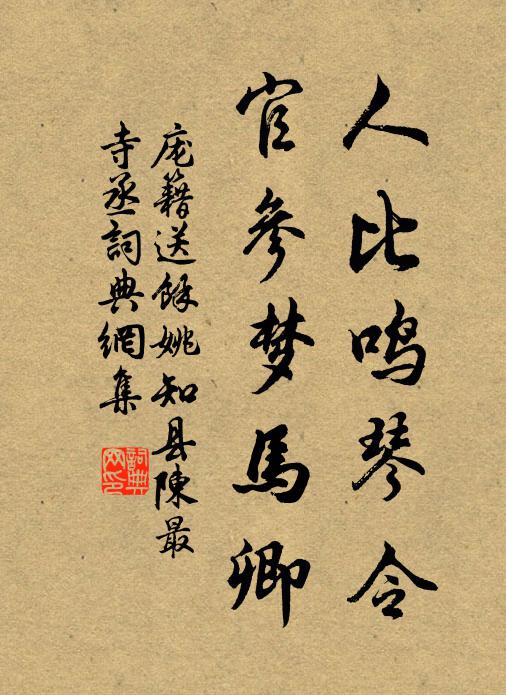 人比鸣琴令
官参梦馬卿
庞籍送馀姚知县陳最
寺丞詞典網集
詞典网印